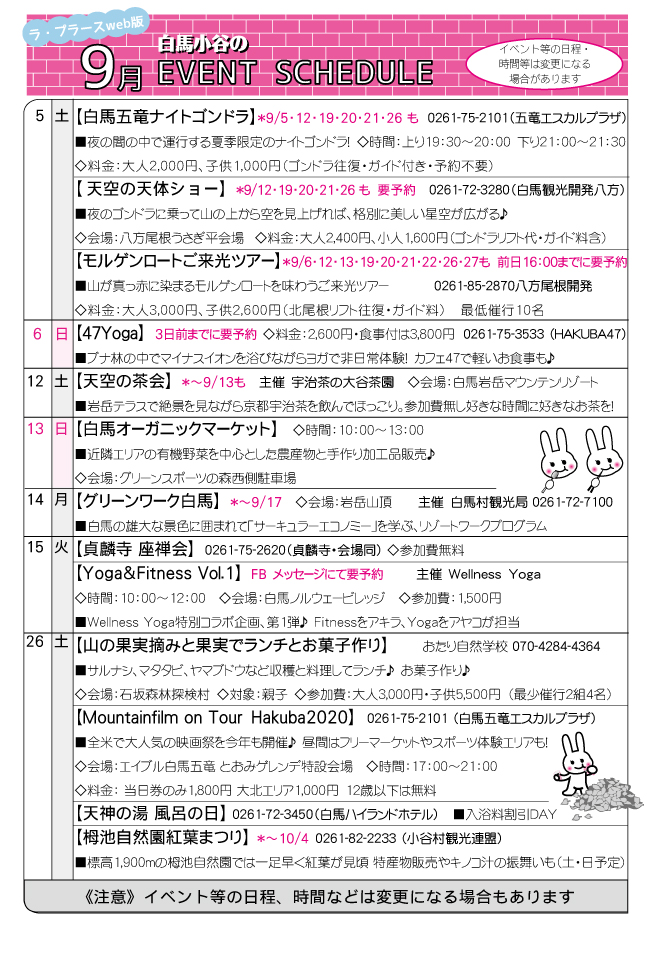 ラ・プラースweb版
白馬小谷の
9月 EVENT SCHEDULE
イベント等の日程・
時間等は変更になる
場合があります
5 土 【白馬五竜ナイトゴンドラ】*9/5・12・19・20・21・26 も 0261-75-2101(五竜エスカルプラザ)
■夜の闇の中で運行する夏季限定のナイトゴンドラ! ◇時間:上り19:30～20:00 下り21:00～21:30
◇料金:大人2,000円、子供1,000円(ゴンドラ往復・ガイド付き・予約不要)
【 天空の天体ショー】 *9/12・19・20・21・26 も 要予約 0261-72-3280(白馬観光開発八方)
■夜のゴンドラに乗って山の上から空を見上げれば、格別に美しい星空が広がる♪
◇会場:八方尾根うさぎ平会場 ◇料金:大人2,400円、小人1,600円(ゴンドラリフト代・ガイド料含)
【モルゲンロートご来光ツアー】*9/6・12・13・19・20・21・22・26・27も 前日16:00までに要予約
■山が真っ赤に染まるモルゲンロートを味わうご来光ツアー 0261-85-2870八方尾根開発
◇料金:大人3,000円、子供2,600円(北尾根リフト往復・ガイド料) 最低催行10名
6 日 【47Yoga】 3日前までに要予約 ◇料金:2,600円・食事付は3,800円 0261-75-3533 (HAKUBA47)
■ブナ林の中でマイナスイオンを浴びながらヨガで非日常体験! カフェ47で軽いお食事も♪
12 土 【天空の茶会】 *～9/13も 主催 宇治茶の大谷茶園 ◇会場:白馬岩岳マウンテンリゾート
■岩岳テラスで絶景を見ながら京都宇治茶を飲んでほっこり。参加費無し好きな時間に好きなお茶を!
13 日 【白馬オーガニックマーケット】 ◇時間:10:00～13:00
■近隣エリアの有機野菜を中心とした農産物と手作り加工品販売♪
◇会場:グリーンスポーツの森西側駐車場
14 月 【グリーンワーク白馬】 *～9/17 ◇会場:岩岳山頂 主催 白馬村観光局 0261-72-7100
■白馬の雄大な景色に囲まれて「サーキュラーエコノミー」を学ぶ、リゾートワークプログラム
15 火 【貞麟寺 座禅会】 0261-75-2620(貞麟寺・会場同) ◇参加費無料
【Yoga&Fitness Vol.1】 FB メッセージにて要予約 主催 Wellness Yoga
◇時間:10:00～12:00 ◇会場:白馬ノルウェービレッジ ◇参加費:1,500円
■Wellness Yoga特別コラボ企画、第1弾♪ Fitnessをアキラ、Yogaをアヤコが担当
26 土 【山の果実摘みと果実でランチとお菓子作り】 おたり自然学校 070-4284-4364
■サルナシ、マタタビ、ヤマブドウなど収穫と料理してランチ♪ お菓子作り♪
◇会場:石坂森林探検村 ◇対象:親子 ◇参加費:大人3,000円・子供5,500円 (最少催行2組4名)
【Mountainfilm on Tour Hakuba2020】 0261-75-2101 (白馬五竜エスカルプラザ)
■全米で大人気の映画祭を今年も開催♪ 昼間はフリーマーケットやスポーツ体験エリアも!
◇会場:エイブル白馬五竜 とおみゲレンデ特設会場 ◇時間:17:00～21:00
◇料金: 当日券のみ1,800円 大北エリア1,000円 12歳以下は無料
【天神の湯 風呂の日】 0261-72-3450(白馬ハイランドホテル) ■入浴料割引DAY
【栂池自然園紅葉まつり】 *～10/4 0261-82-2233 (小谷村観光連盟)
■標高1,900mの栂池自然園では一足早く紅葉が見頃 特産物販売やキノコ汁の振舞いも(土・日予定)
《注意》イベント等の日程、時間などは変更になる場合もあります